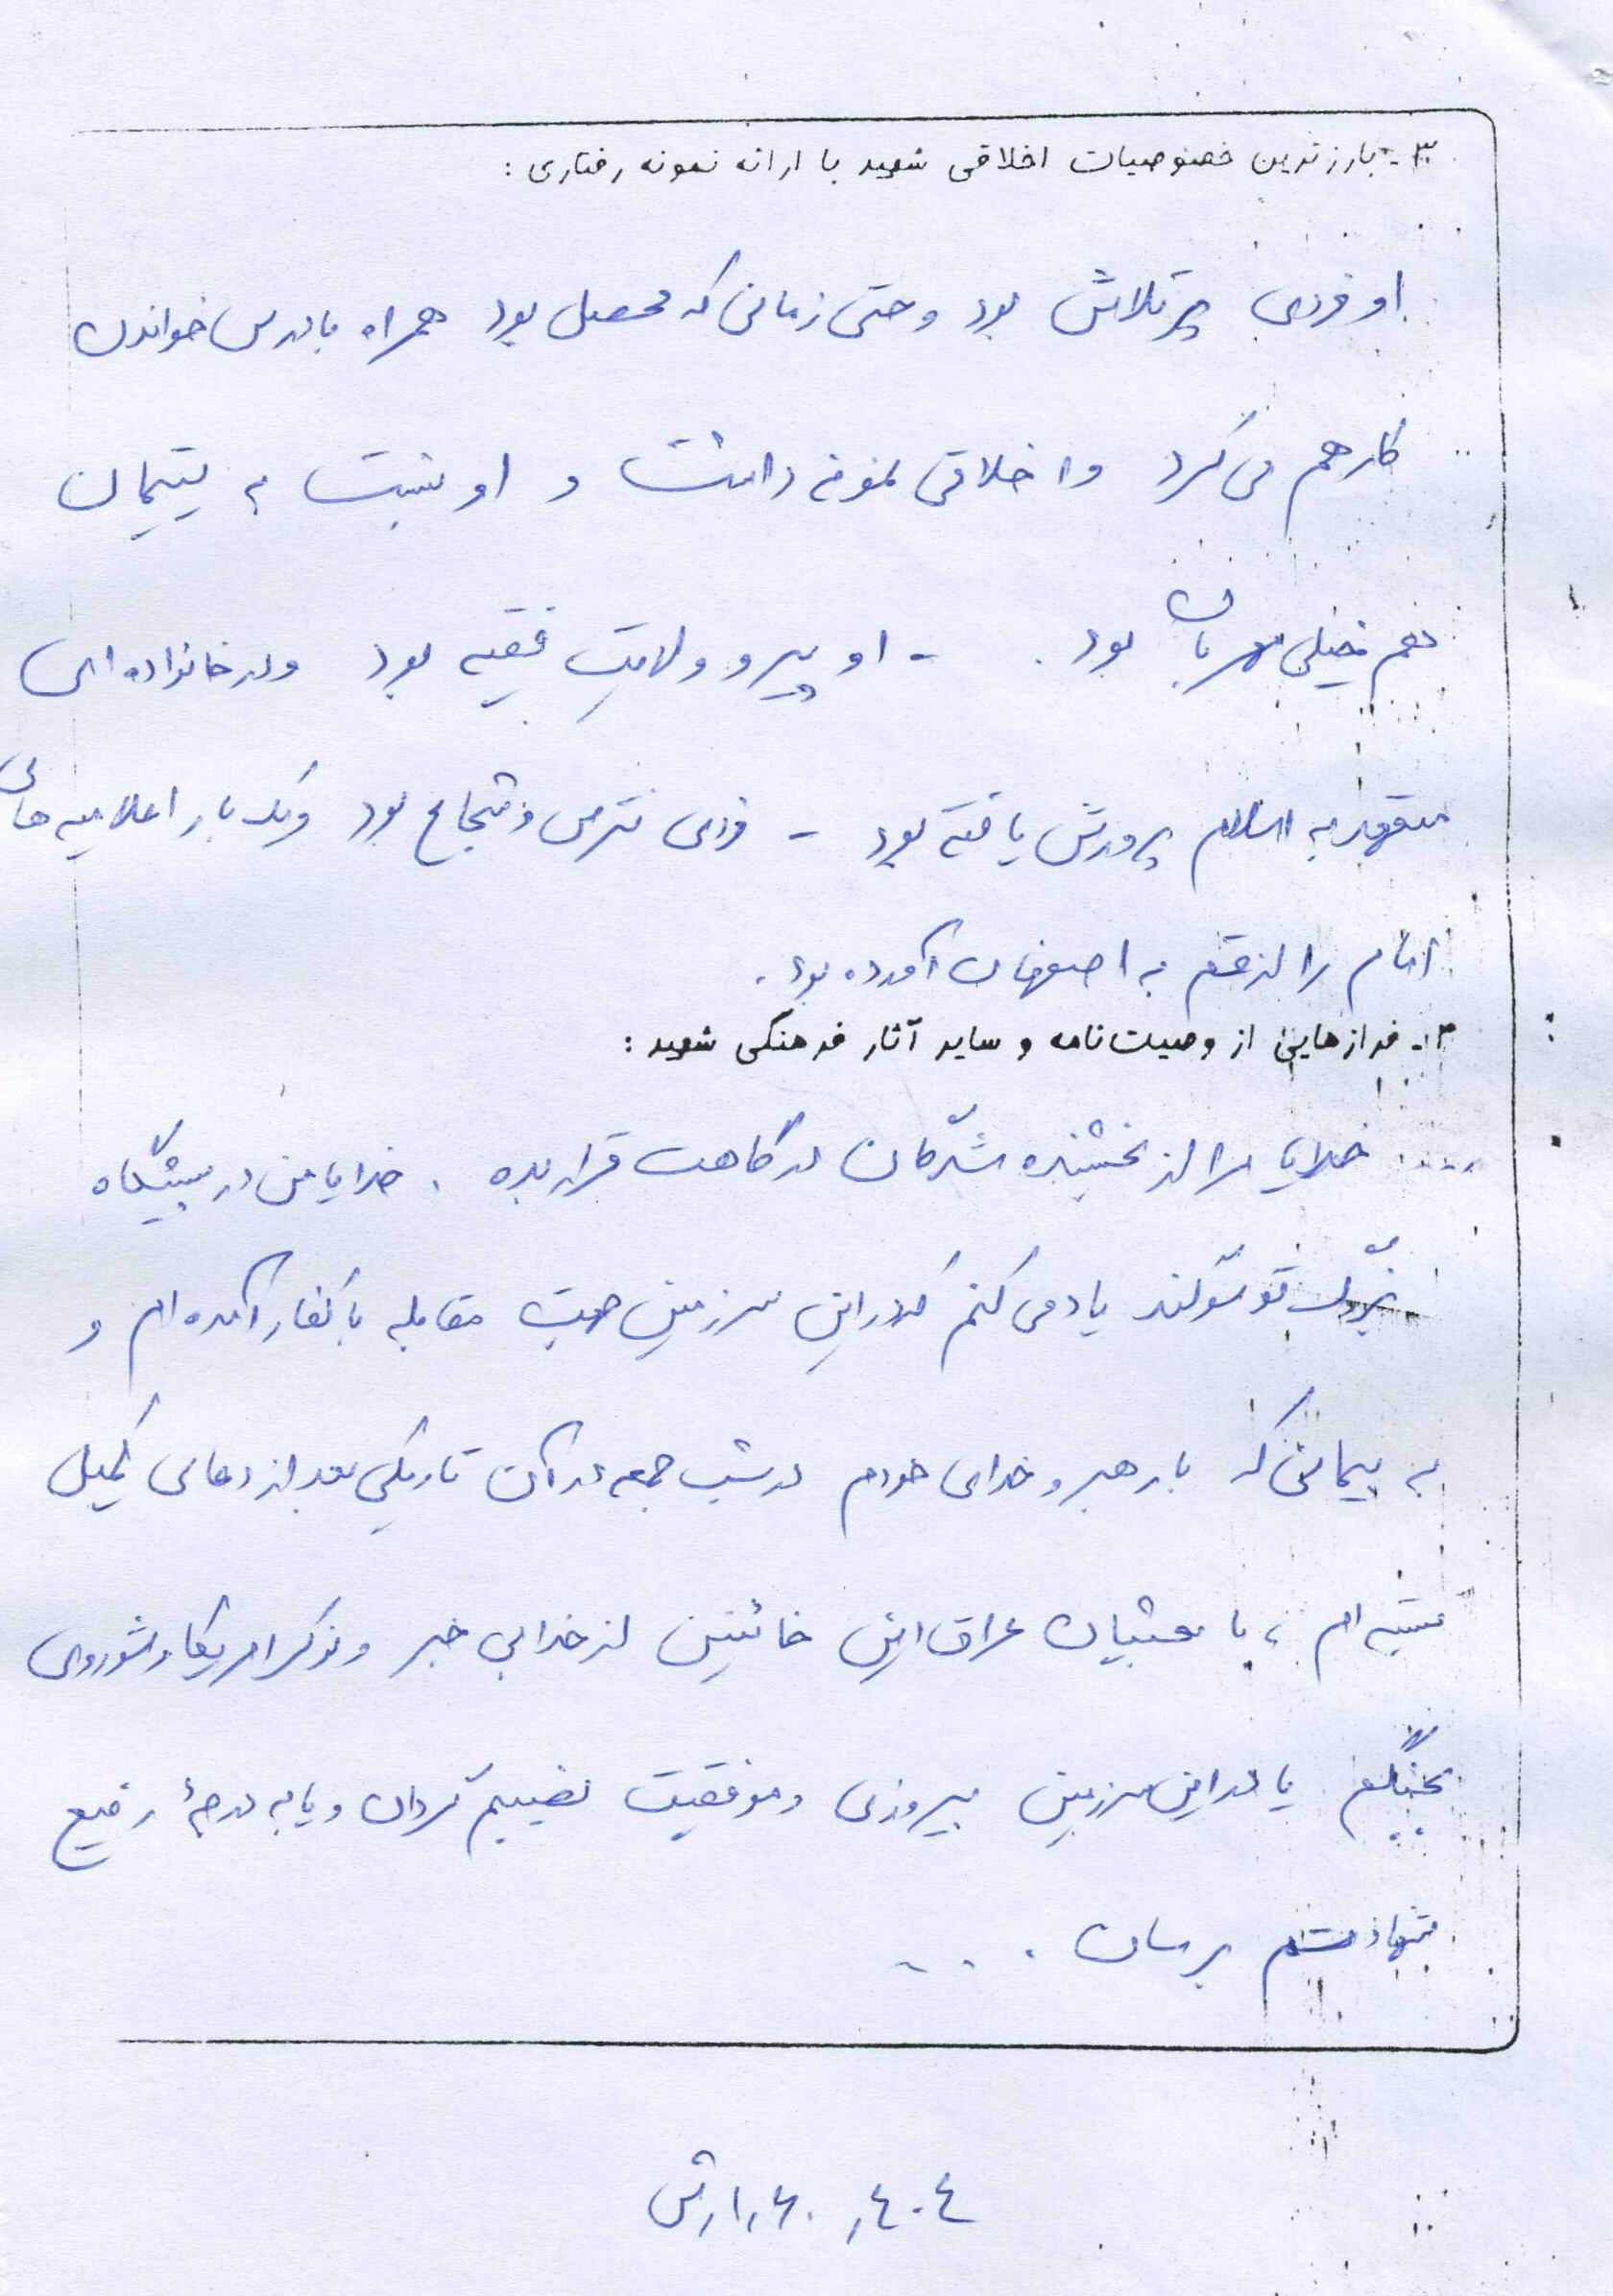 ۳- بارزترین خصوصیات اخلاقی شهید با ارائه نمونه رفتاری :
او فردی پرتلاش بود و حتی زمانی که محصل بود همراه با درس خواندن
کار هم می کرد و اخلاقی نمونه داشت و او نسبت به یتیمان
هم خیلی مهربان بود . - او پیرو ولایتِ فقیه بود و در خانواده ای
متعهد به اسلام پرورش یافته بود - فردی نترس و شجاع بود و یک بار اعلامیه های
امام را از قم به اصفهان آورده بود .
۴- فرازهایی از وصیت‌نامه و سایر آثار فرهنگی شهید :
.... خدایا مرا از بخشنده شدگان درگاهت قرار بده . خدایا من در پیشگاه
بزرگ تو سوگند یاد می کنم که در این سرزمین جهت مقابله با کفار آمده ام و
به پیمانی که با رهبر و خدای خودم در شب جمعه در آن تاریکی بعد از دعای کمیل
بسته ام ، با بعثیان عراق این خائنین از خدا بی خبر و نوکر امریکا و شوروی
بجنگم یا در این سرزمین پیروزی و موفقیت نصیبم گردان و یا به درجهٔ رفیع
شهادتم برسان . ...